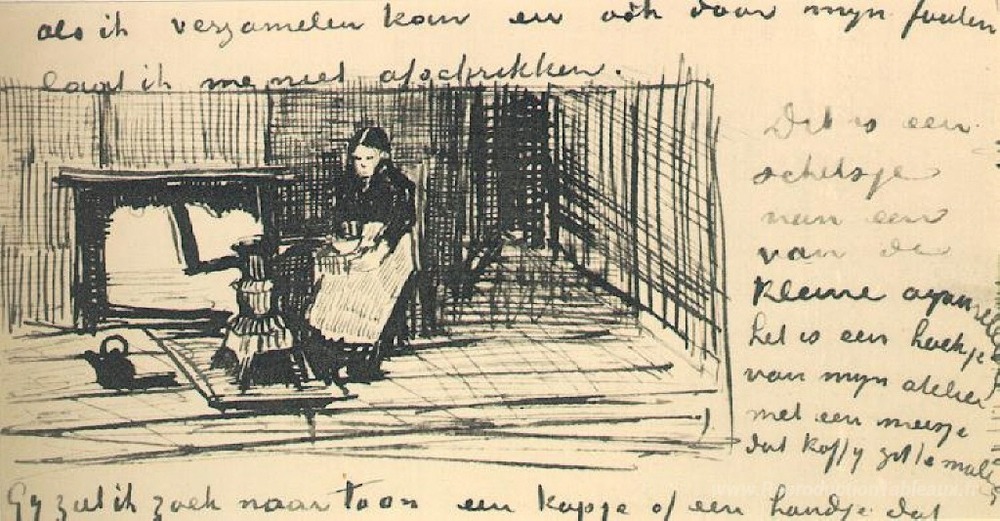 als ik verzamelen kan en ook door mijn fouten
laat ik me niet afschrikken.
Dit is een
schetsje
naar een
van de
kleine aquarellen
het is een hoekje
van mijn atelier
met een meisje
dat koffy zit te malen
Gy ziet ik zoek naar toon een kopje of een handje dat